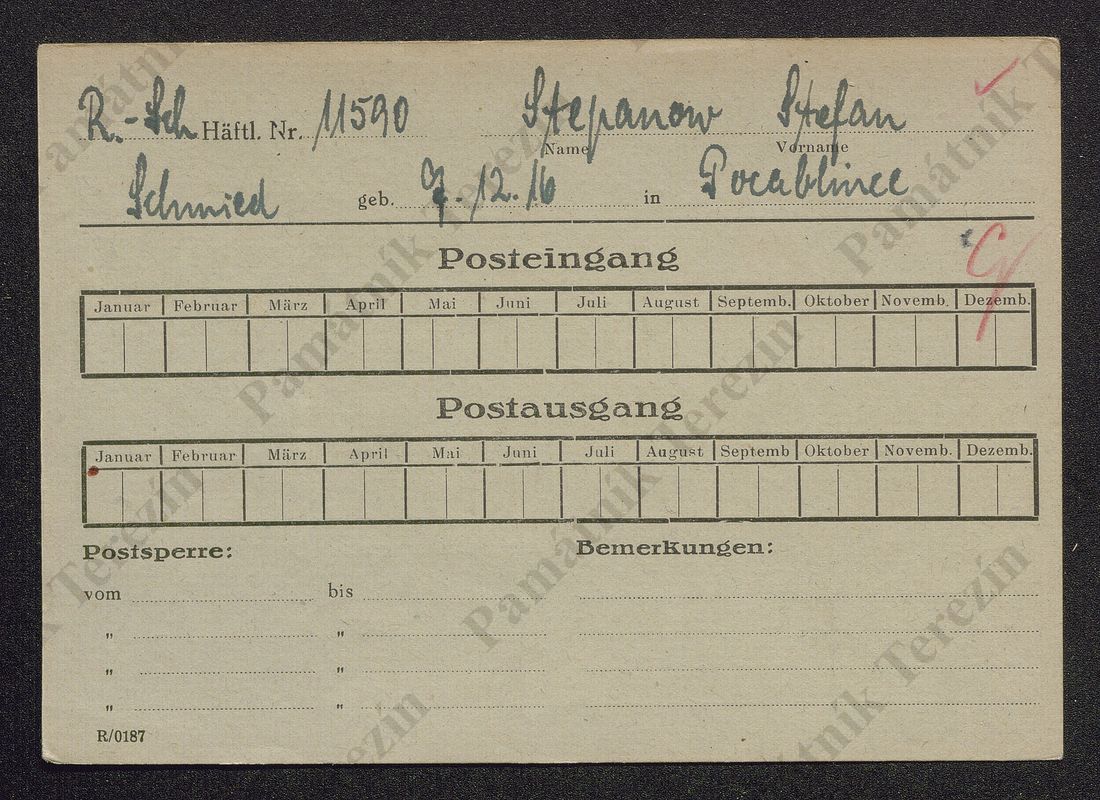 R.-Sch Häftl. Nr. 11590 Stepanow Stefan
Name Vorname
Schmied geb. 7.12.16 in
Posteingang
Januar Februar März April Mai Juni Juli August Septemb. Oktober Novemb. Dezemb.
Postausgang
Januar Februar März April Mai Juni Juli August Septemb Oktober Novemb. Dezemb.
Postsperre: Bemerkungen:
vom bis
" "
" "
" "
R/0187
Památník Terezín